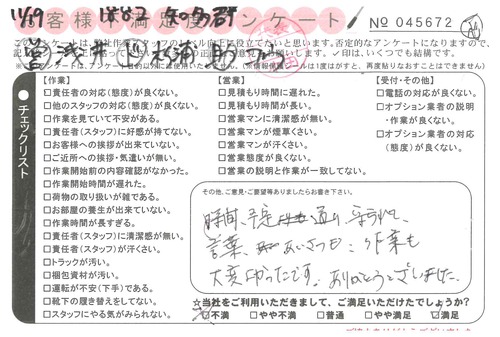 お客様満足度アンケート
№ 045672
【作業】
□責任者の対応(態度)が良くない。
□他のスタッフの対応(態度)が良くない。
□作業を見ていて不安がある。
□責任者(スタッフ)に好感が持てない。
□お客様への挨拶が出来ていない。
□ご近所への挨拶・気遣いが無い。
□作業開始前の内容確認がなかった。
□作業開始時間が遅れた。
□荷物の取り扱いが雑である。
□お部屋の養生が出来ていない。
□作業時間が長すぎる。
□責任者(スタッフ)に清潔感が無い。
□責任者(スタッフ)が汗くさい。
□トラックが汚い。
□梱包資材が汚い。
□運転が不安(下手)である。
□靴下の履き替えをしてない。
□スタッフにやる気がみられない。
【営業】
□見積もりに遅れた。
□見積もり時間が長い。
□営業マンに清潔感が無い。
□営業マンが煙草くさい。
□営業マンが汗くさい。
□営業態度が良くない。
□営業の説明と作業が一致してない。
【受付・その他】
□電話の対応が良くない。
□オプション業者の説明
・作業が良くない。
□オプション業者の対応
(態度)が良くない。
チェックリスト
その他、ご意見・ご要望等ありましたらお書き下さい。
時間、予定通り守られて、
言葉、あいさつも、作業も
大変助かったです。ありがとうございました。
☆当社をご利用いただきまして、ご満足いただけたでしょうか?
□不満 □やや不満 □普通 □やや満足 □満足